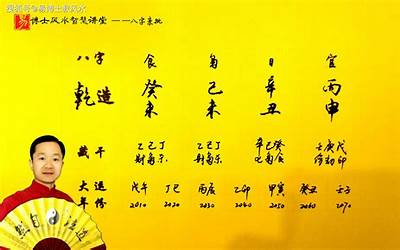 搜狐号@易博士谈风水
易 博士风水智慧讲堂——八字
八字 食 枭 日 官
乾造 癸 己 辛 丙
未 未 丑 申
藏干 乙己丁 乙己丁 辛己癸 壬庚戊
财枭杀 财枭杀 比枭食 伤劫印
大运 戊午 丁巳 丙辰 乙卯 甲寅 癸丑 壬子
年份 2010 2020 2030 2040 2050 2060 2070